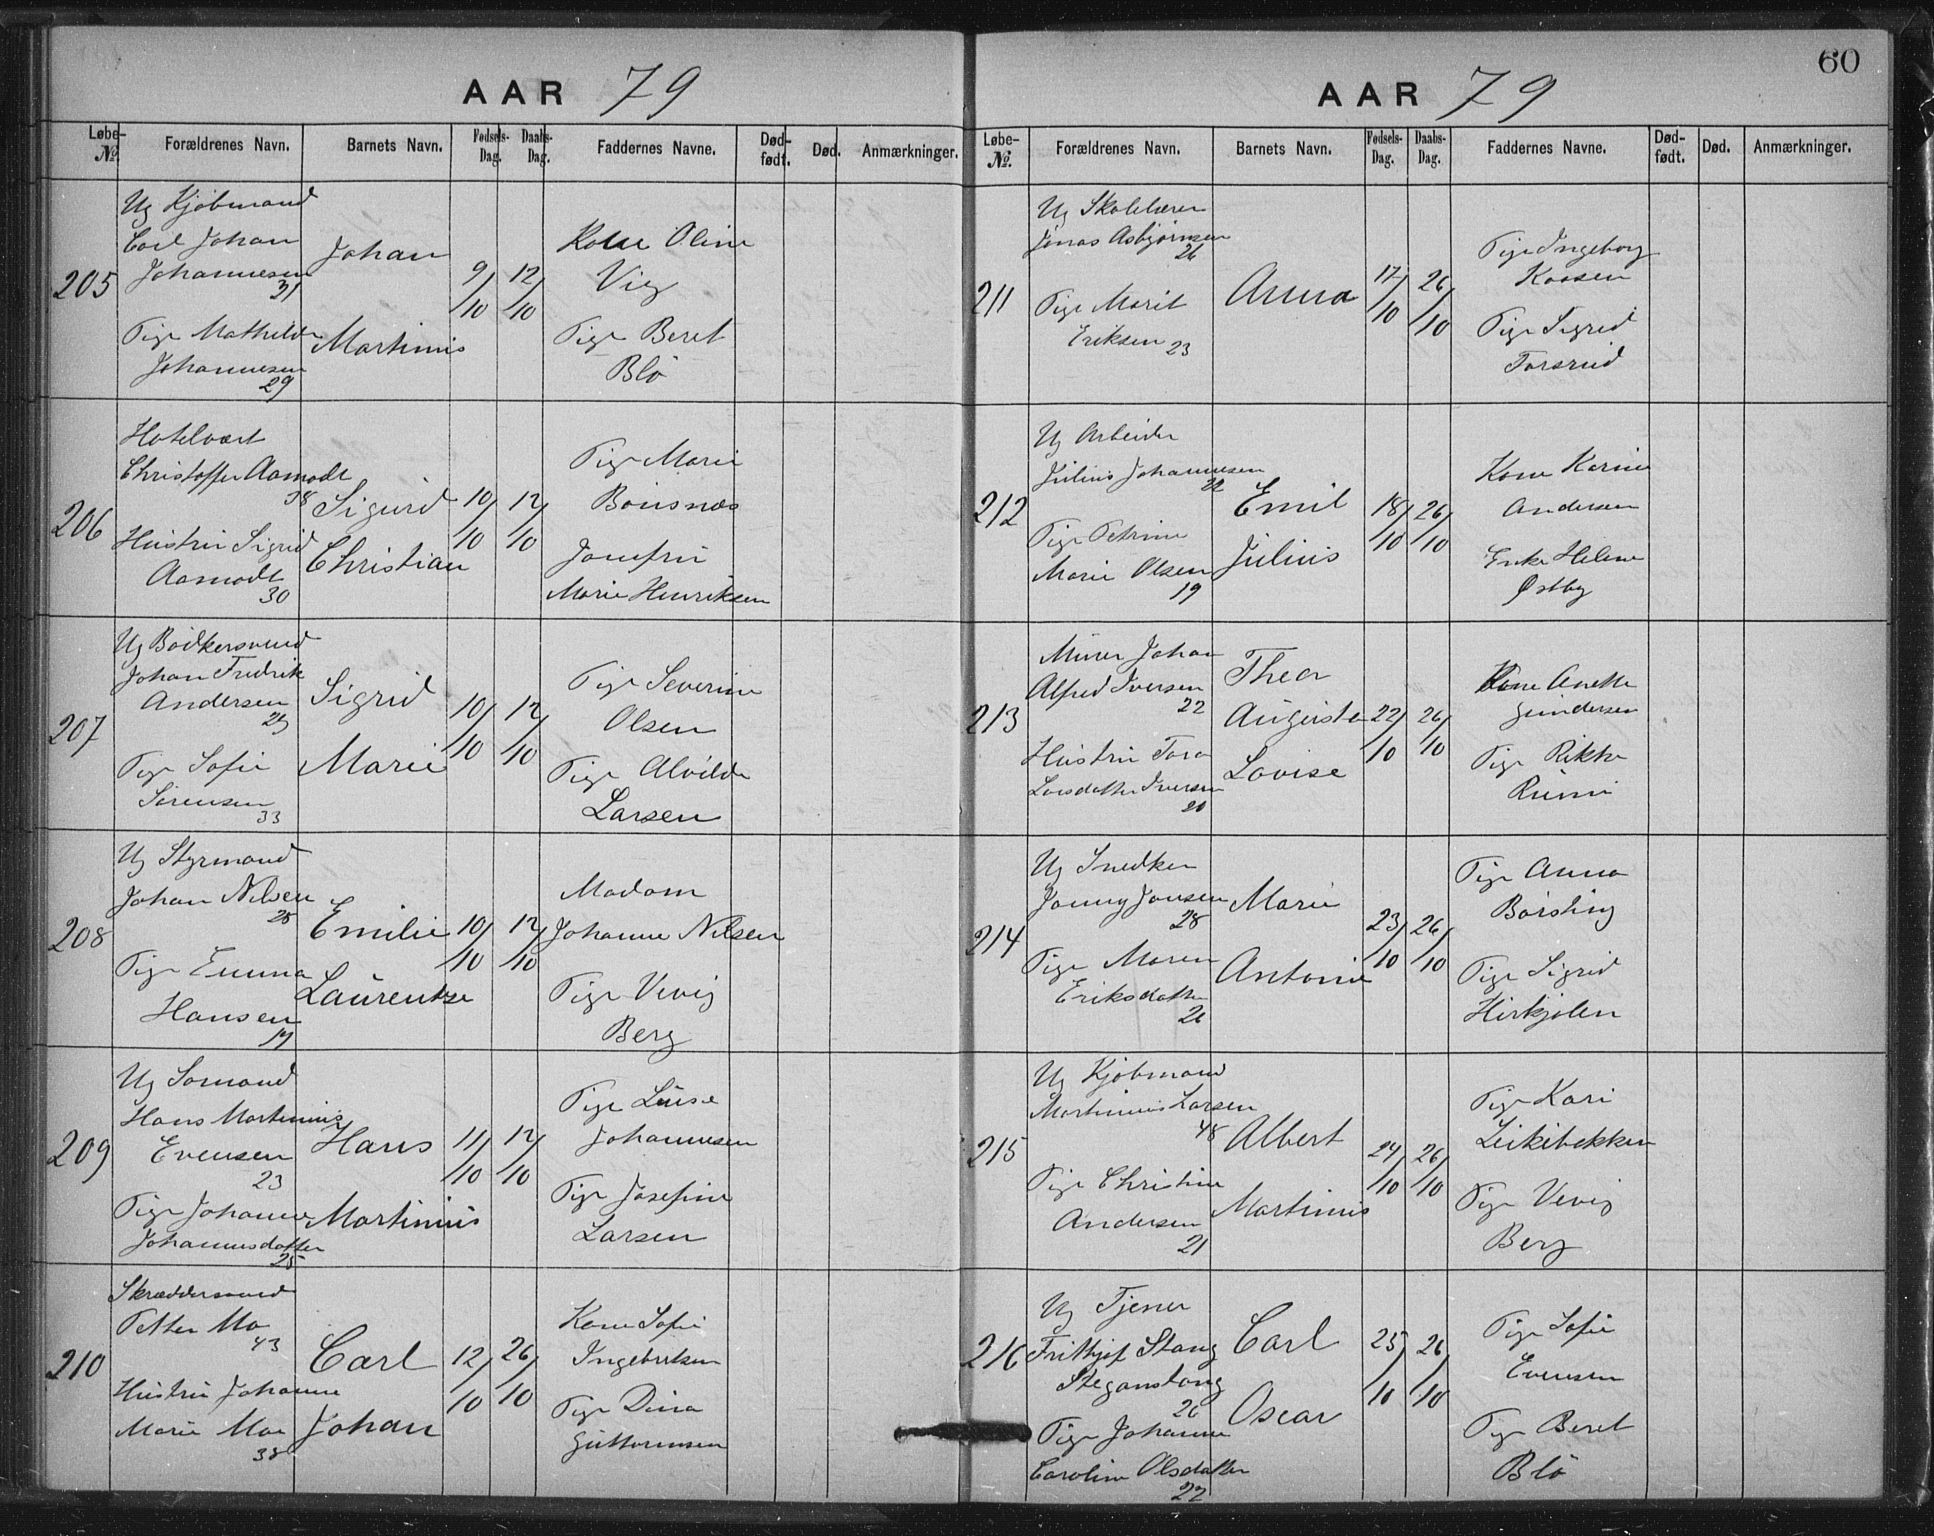 60
AAR 79
Løbe- №. Forældrenes Navn. Barnets Navn. Fødsels- Dag. Daabs- Dag. Faddernes Navne. Død- født. Død. Anmærkninger.
205
Ug Kjøbmand
Carl Johan
Johannesen
31
Pige Mathilde
Johannesen
29
Johan
Martinus
9/10 12/10
Kone Oline
Vig
Pige Beret
Blö
206
Hotelvært
Christoffer Aamodt
38
Hustru Sigrid
Aamodt
30
Sigurd
Christian
10/10 12/10
Pige Marie
Bonsnæs
Jomfru
Marie Henriksen
207
Ug Bødkersvend
Johan Fredrik
Andersen
Pige Sofie
Sørensen
33
Sigrid
Marie
10/10 12/10
Pige Severine
Olsen
Pige Alvilde
Larsen
208
Ug Styrmand
Johan Nilsen
28
Pige Emma
Hansen
19
Emilie
Laurentze
10/10 12/10
Madam
Johanne Nilsen
Pige Vevig
Berg
209
Ug Sømand
Hans Martinius
Evensen
23
Pige Johanne
Johannesdatter
25
Hans
Martinius
11/10 12/10
Pige Luise
Johannesen
Pige Josefine
Larsen
210
Skræddersvend
Petter Mo
43
Hustru Johanne
Marie Moe
38
Carl
Johan
12/10 26/10
Kone Sofie
Ingebretsen
Pige Dina
Guttormsen
AAR 79
Løbe- №. Forældrenes Navn. Barnets Navn. Fødsels- Dag. Daabs- Dag. Faddernes Navne. Død- født. Død. Anmærkninger.
211
Ug Skolelærer
Jonas Asbjørnsen
26
Pige Marit
Eriksen 23
Anna
17/10 26/10
Pige Ingeborg
Kaasen
Pige Sigrid
Forsrud
212
Ug Arbeider
Julius Johannesen
22
Pige Petrine
Marie Olsen
19
Emil
Julius
18/10 26/10
Kone Karine
Andersen
Enke Helene
Østby
213
Murer Johan
Alfred Iversen
22
Hustru Tora
Larsdatter Iversen
20
Thea
Auguste
Lovise
22/10 26/10
Kone Anette
Gundersen
Pige Rikke
214
Ug Snedker
Jonny Jonsen
28
Pige Maren
Eriksdatter
26
Marie
Antonie
23/10 26/10
Pige Anna
Børsting
Pige Sigrid
Hirkjølen
215
Ug Kjøbmand
Martinius Larsen
48
Pige Christine
Andersen
21
Albert
Martinius
24/10 26/10
Pige Kari
Leikibekken
Pige Vevig
Berg
216
Ug Tjener
Frithjof Stang
Steganstang
26
Pige Johanne
Caroline Olsdatter
22
Carl
Oscar
25/10 26/10
Pige Sofie
Evensen
Pige Beret
Blö